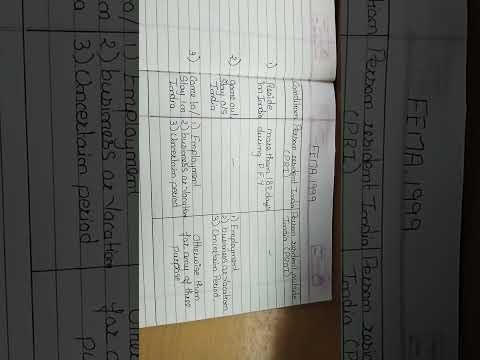 FEMA, 1999
Condition
Person resident India (PRI)
Person resident outside India (PROI)
1) Reside in India
more than 182 days during P.F.Y
-
2) Gone out / Stay o/s India
-
1) Employment
2) business or Vacation
3) Uncertain Period.
3) Came to / Stay in India
1) Employment
2) business or Vacation
3) Uncertain period
Otherwise than for any of three purpose
FEMA, 1999
Person resident India (PRI)
Person res
India (P
to/
1) Employment
2) business or Vacation
3) Uncertain period
for any